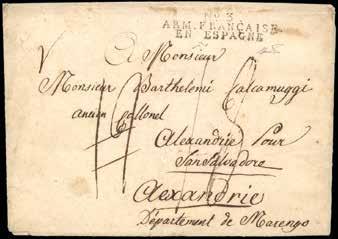 No. 3
ARM. FRANÇAISE
EN ESPAGNE
A Monsieur
Monsieur Barthelemi Calcamuggi
ancien Collonel
Alexandrie pour
San Salvadore
Alexandrie
Département de Marengo